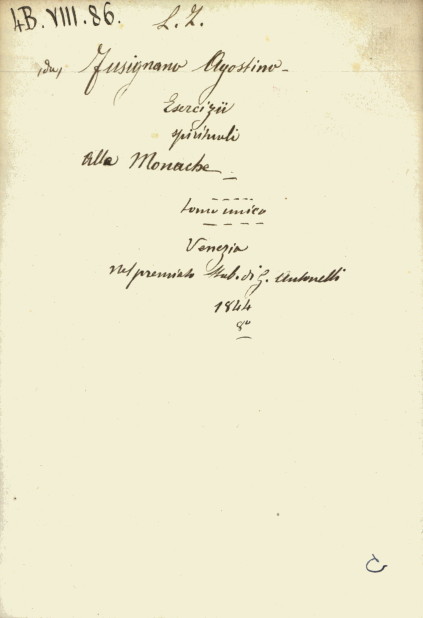 4B. VIII. 86. L. Z.
(da) Fusignano Agostino -
Esercizii
spirituali
alla Monache -
tomo unico
Venezia
Nel premiato Stab. di G. Antonelli
1844
8°